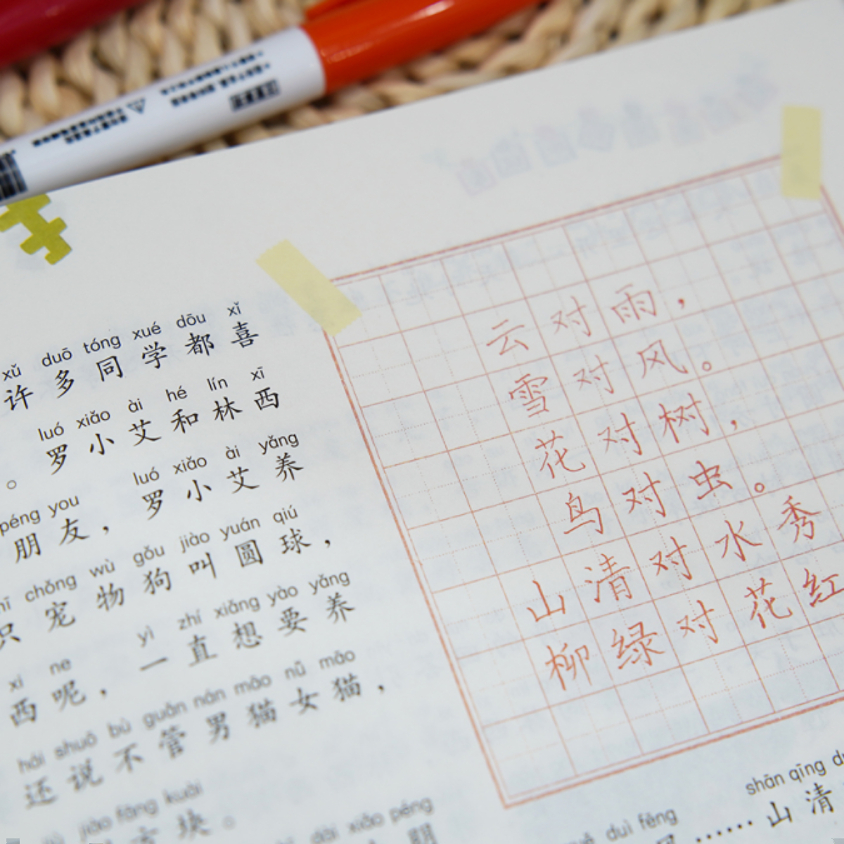 xǔ duō tóng xué dōu xǐ
许多同学都喜
luó xiǎo ài hé lín xī
。罗小艾和林西
péng you luó xiǎo ài yǎng
朋友，罗小艾养
chǒng wù gǒu jiào yuán qiú
只宠物狗叫圆球，
xi ne yì zhí xiǎng yào yǎng
西呢，一直想要养
hái shuō bù guǎn nán māo nǚ māo
还说不管男猫女猫，
jiāo fāng kuài
方块。
xiǎo péng
朋
云对雨，
雪对风。
花对树，
鸟对虫。
山清对水秀
柳绿对花红
shān qīng
duì fēng
风……山清